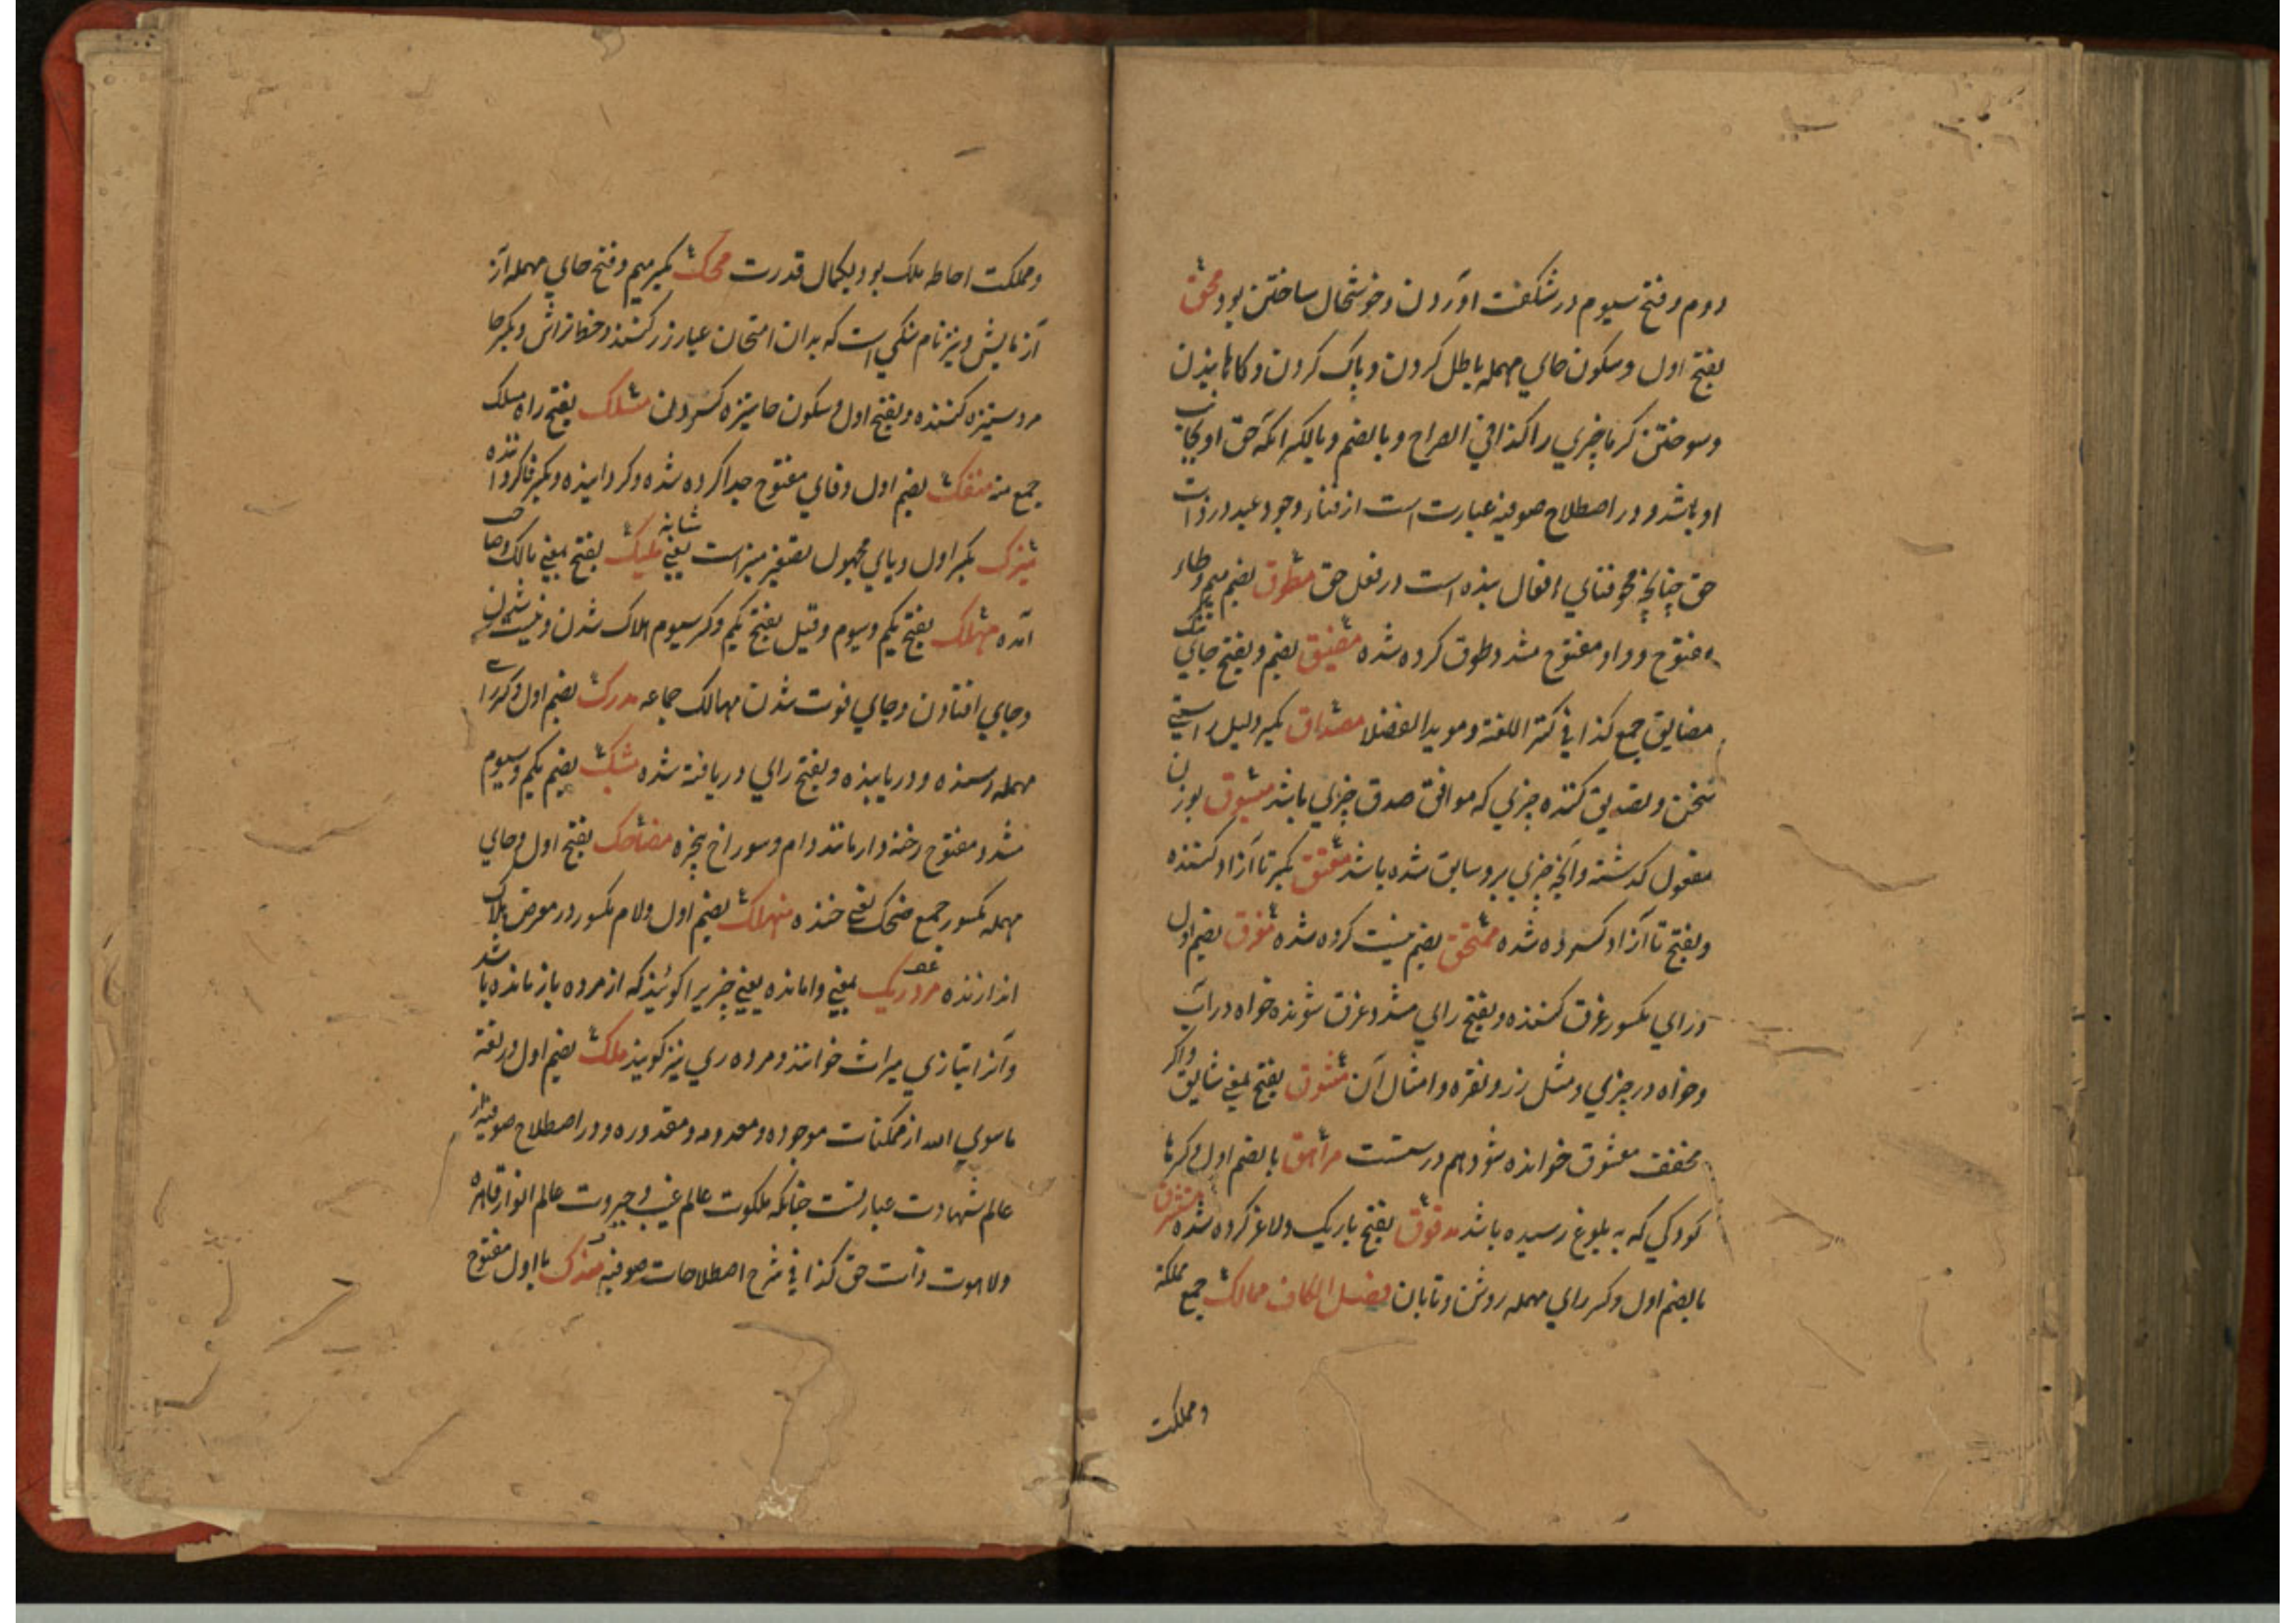 دوم و فتح سیوم در شکفت آوردن و خوشحال ساختن بود محق
بفتح اول و سکون حای مهمله باطل کردن و پاک کردن و کاهانیدن
وسوختن کرما چیزي را کذا في الصراح و بالضم و بالکسر آنکه حق او بجانب
او باشد و در اصطلاح صوفیه عبارت است از فناء وجود عبد در ذات
حق چنانچه محو فنای افعال بنده است در فعل حق مطوق بضم میم و طاء
مفتوح و واو مفتوح مشدد طوق کرده شده مضیق بضم و بفتح جاي تنک
مضایق جمع کذا في کنز اللغة و موید الفضلا مصداق بکسر دلیل راستي
سخن و تصدیق کننده چیزي که موافق صدق چیزي باشد مسبوق بوزن
مفعول کذشته و آنچه چیزي برو سابق شده باشد معتق بکسر تا آزاد کننده
و بفتح تا آزاد کرده شده ممتحق بضم نیست کرده شده مغرق بضم اول
و راي مکسور غرق کننده و بفتح راي مشدد غرق شونده خواه در آب
و خواه در چیزي و مثل زر و نقره و امثال آن مشوق بفتح بمعني شایق و اکر
مخفف معشوق خوانده شود هم درستست مراهق بالضم اول و کسر ها
کودکي که به بلوغ رسیده باشد مدقوق بفتح باریک و لاغر کرده شده مشرق
بالضم اول و کسر راي مهمله روشن و تابان فصل الکاف ممالک جمع مملکة
و مملکت
و مملکت احاطه ملک بود بکمال قدرت محک بکسر میم و فتح حاي مهمله از
آزمایش و نیز نام سنکي است که بدان امتحان عیار زر کنند و خط تراش و بکسر حا
مرد ستیزه کننده و بفتح اول و سکون حا ستیزه کردن مسلک بفتح راه مسالک
جمع منه منفک بضم اول و فاي مفتوح جدا کرده شده و کردانیده و بکسر فا کرداننده
میزک بکسر اول و یاي مجهول تصغیر میز است یعني شانه ملیک بفتح بمعني مالک و صاحب
آمده مهلک بفتح یکم و سیوم و قیل بفتح یکم و کسر سیوم هلاک شدن و نیست شدن
و جاي افتادن و جاي فوت شدن مهالک جماعه مدرک بضم اول و کسر راي
مهمله رسنده و دریابنده و بفتح راي دریافته شده مشبک بضم یکم و سیوم
مشدد مفتوح رخنه دار مانند دام و سوراخ پنجره مضاحک بفتح اول و حاي
مهمله مکسور جمع مضحک یعني خنده منهلک بضم اول و لام مکسور در معرض هلاک
اندازنده مرد ریک بمعني وامانده یعني چیزیرا کویند که از مرده باز مانده باشد
و آنرا بتازي میراث خوانند و مرده ري نیز کویند ملک بضم اول در لغة
ماسوي الله از ممکنات موجوده و معدومه و مقدوره و در اصطلاح صوفیه از
عالم شهادت عبارتست چنانکه ملکوت عالم غیب و جبروت عالم انوار قاهره
و لاهوت ذات حق کذا في شرح اصطلاحات صوفیه مندک با اول مفتوح